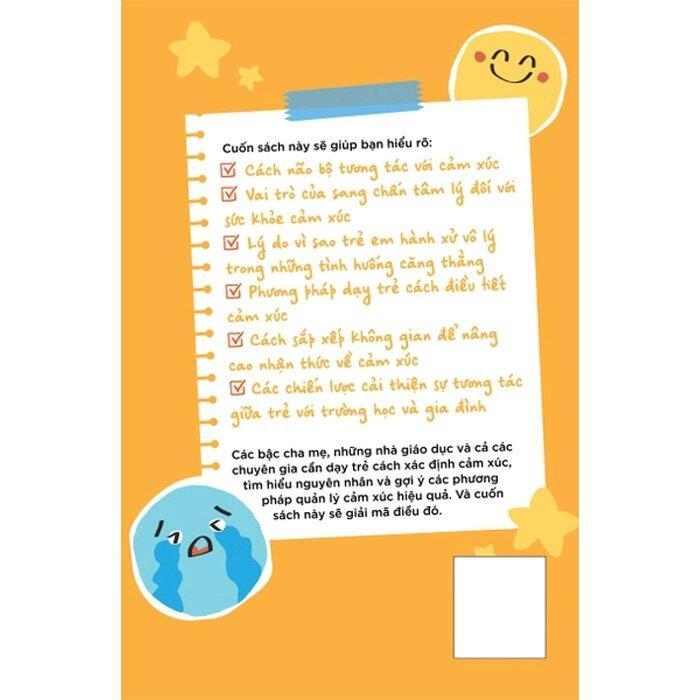 Cuốn sách này sẽ giúp bạn hiểu rõ:
Cách não bộ tương tác với cảm xúc
Vai trò của sang chấn tâm lý đối với
sức khỏe cảm xúc
Lý do vì sao trẻ em hành xử vô lý
trong những tình huống căng thẳng
Phương pháp dạy trẻ cách điều tiết
cảm xúc
Cách sắp xếp không gian để nâng
cao nhận thức về cảm xúc
Các chiến lược cải thiện sự tương tác
giữa trẻ với trường học và gia đình
Các bậc cha mẹ, những nhà giáo dục và cả các
chuyên gia cần dạy trẻ cách xác định cảm xúc,
tìm hiểu nguyên nhân và gợi ý các phương
pháp quản lý cảm xúc hiệu quả. Và cuốn
sách này sẽ giải mã điều đó.